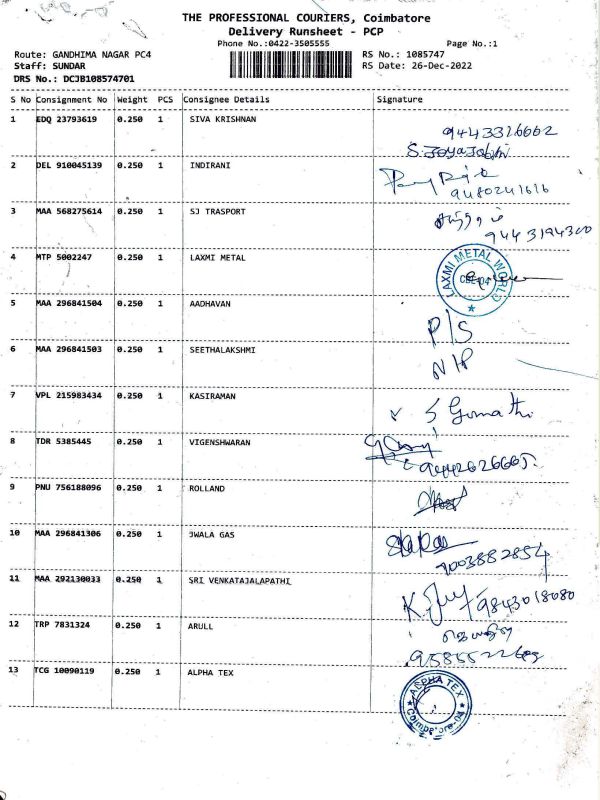 THE PROFESSIONAL COURIERS, Coimbatore
Delivery Runsheet - PCP
Phone No.:0422-3505555 Page No.:1
Route: GANDHIMA NAGAR PC4 RS No.: 1085747
Staff: SUNDAR RS Date: 26-Dec-2022
DRS No.: DCJB108574701
S No Consignment No Weight PCS Consignee Details Signature
1 EDQ 23793619 0.250 1 SIVA KRISHNAN
9443326662
S.Joyajobin
2 DEL 910045139 0.250 1 INDIRANI
9480241616
3 MAA 568275614 0.250 1 SJ TRASPORT
9443194300
4 MTP 5002247 0.250 1 LAXMI METAL
LAXMI METAL WORLD
CBE-04
5 MAA 296841504 0.250 1 AADHAVAN
P/S
6 MAA 296841503 0.250 1 SEETHALAKSHMI
N/P
7 VPL 215983434 0.250 1 KASIRAMAN
S Gomathi
8 TDR 5385445 0.250 1 VIGENSHWARAN
9442626665
9 PNU 756188096 0.250 1 ROLLAND
10 MAA 296841306 0.250 1 JWALA GAS
9003882854
11 MAA 292130033 0.250 1 SRI VENKATAJALAPATHI
9843018080
12 TRP 7831324 0.250 1 ARULL
13 TCG 10090119 0.250 1 ALPHA TEX
ALPHA TEX
Coimbatore-04